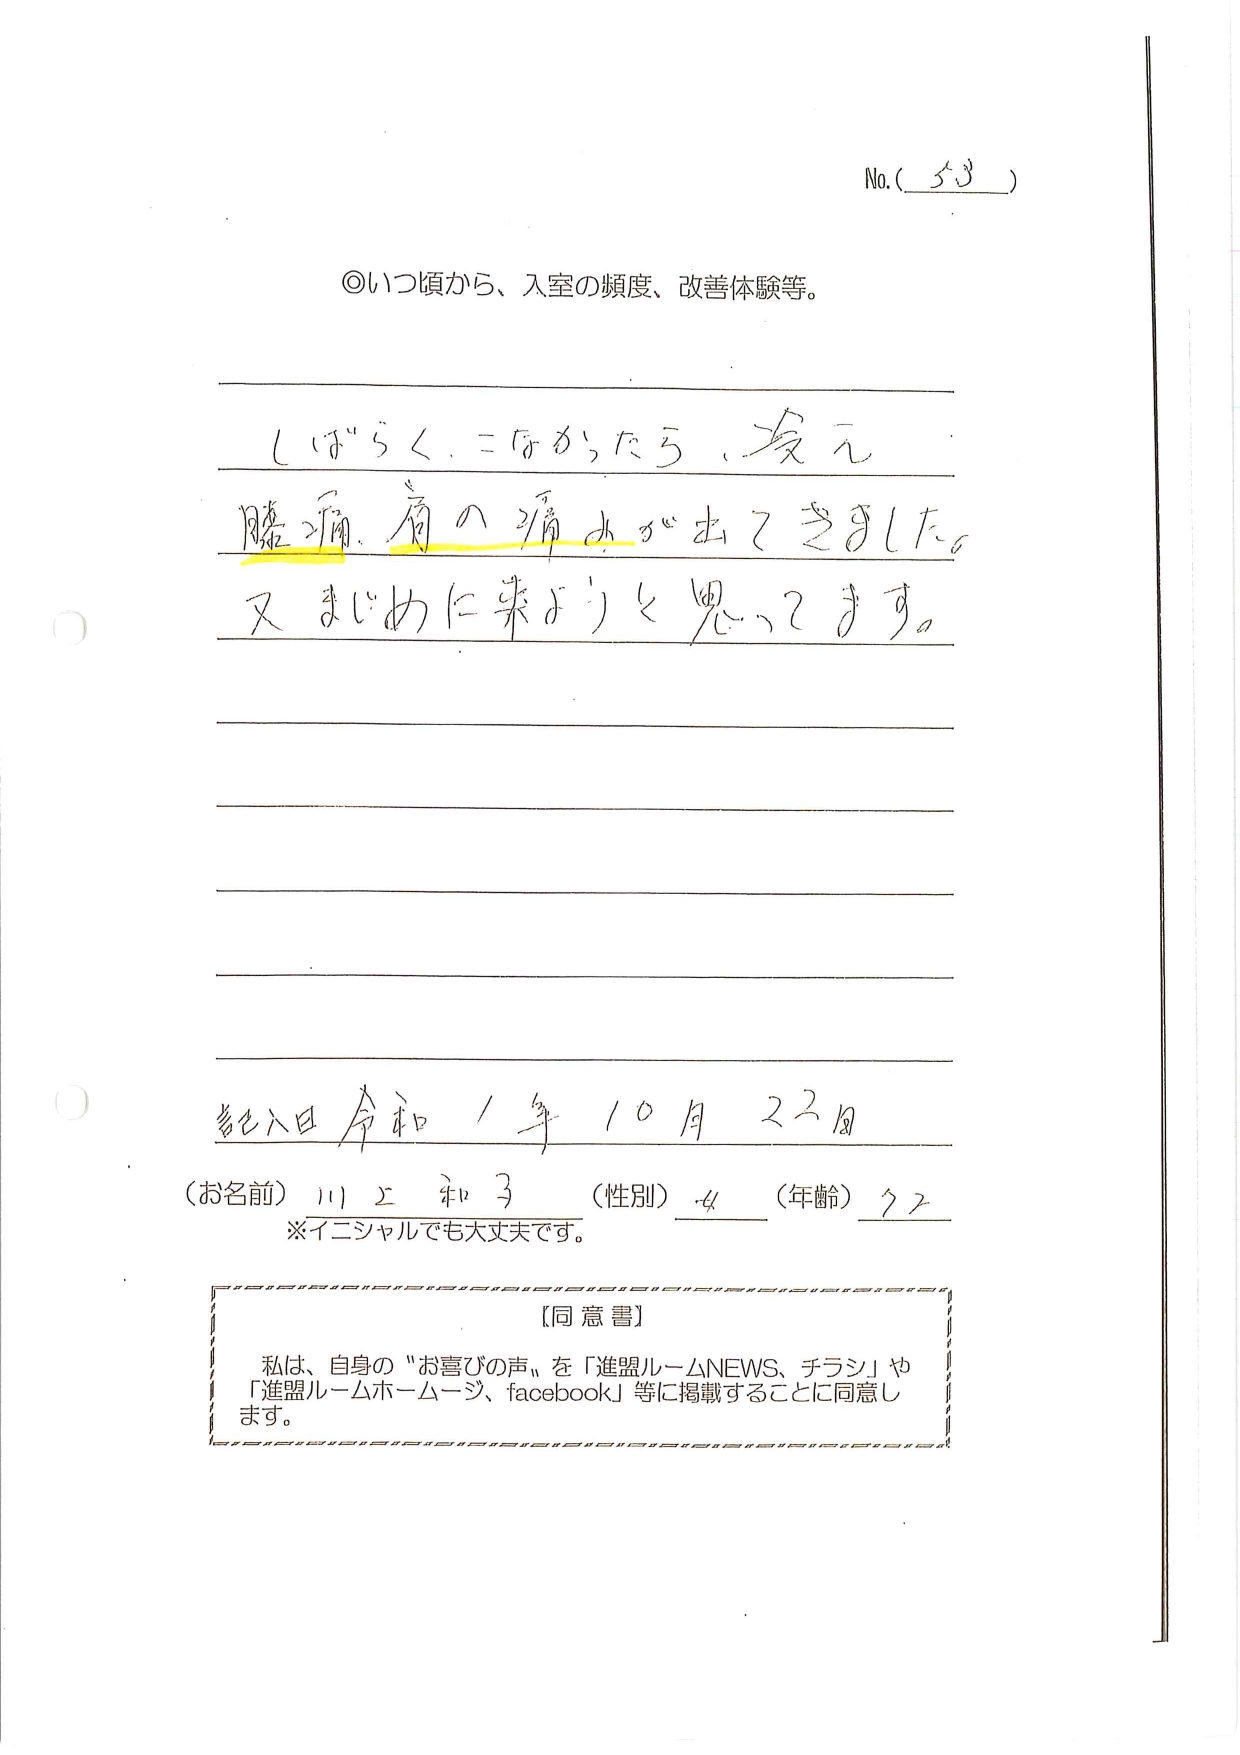 No.( 53 )
◎いつ頃から、入室の頻度、改善体験等。
しばらく、こなかったら、冷え
膝痛、肩の痛みが出てきました。
又まじめに来ようと思ってます。
記入日 令和 1 年 10 月 22日
（お名前） 川上 和子 （性別） 女 （年齢） 72
※イニシャルでも大丈夫です。
【同 意 書】
私は、自身の〝お喜びの声〟を「進盟ルームNEWS、チラシ」や
「進盟ルームホームージ、facebook」等に掲載することに同意し
ます。